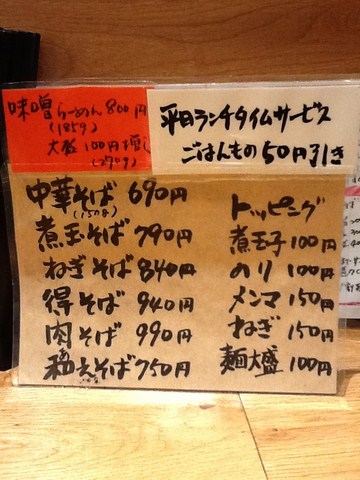 味噌らーめん800円
(185g)
大盛100円増し
(270g)
平日ランチタイムサービス
ごはんもの50円引き
中華そば 690円
(150g)
煮玉そば 790円
ねぎそば 840円
得そば 940円
肉そば 990円
和えそば 750円
トッピング
煮玉子 100円
のり 100円
メンマ 150円
ねぎ 150円
麺大盛 100円